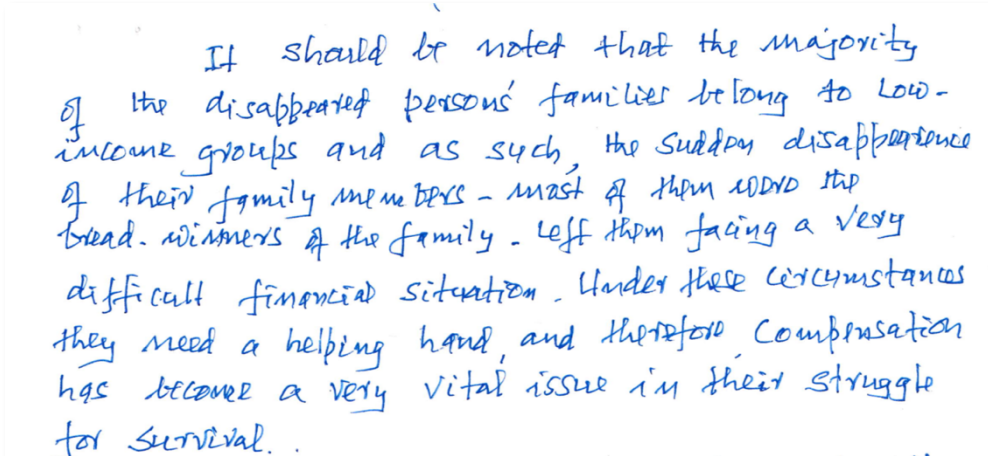 It should be noted that the majority
of the disappeared persons' families belong to Low-
income groups and as such, the sudden disappearence
of their family members - most of them were the
bread-winners of the family - left them facing a very
difficult financial situation. Under these circumstances
they need a helping hand, and therefore compensation
has become a very vital issue in their struggle
for survival.